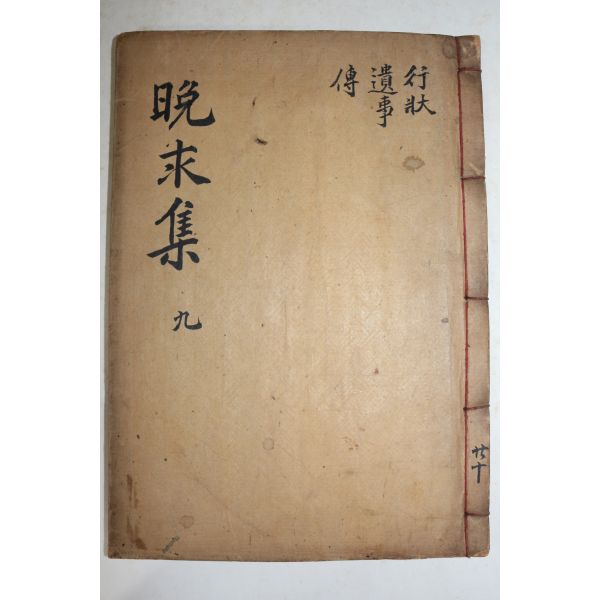 行狀
遺事
傳
晩求集
九
共十